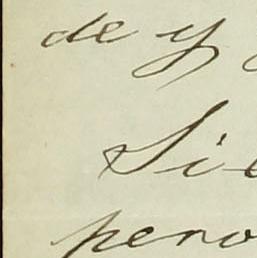 de y
Sie
pero